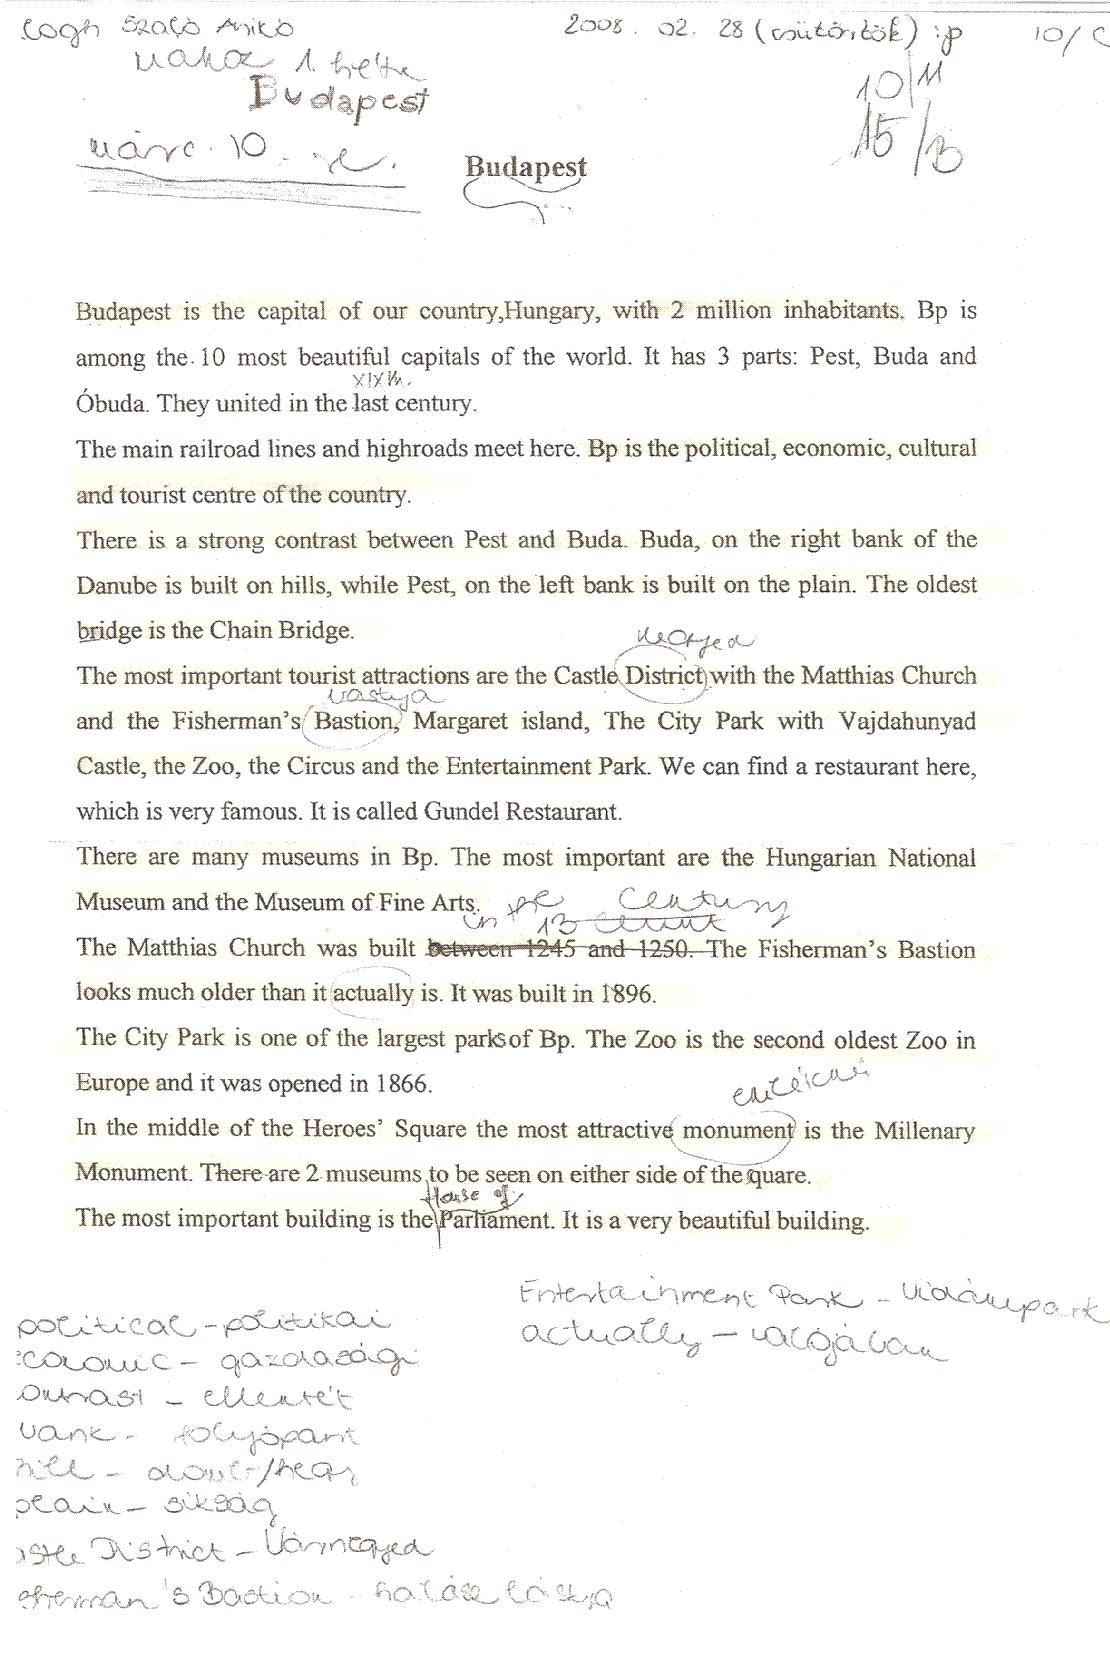 Szabó Anikó 2008. 02. 28 (csütörtök) :p 10/C
1. hétre
Budapest 10/11
márc. 10.-re. 15/B
Budapest
Budapest is the capital of our country,Hungary, with 2 million inhabitants. Bp is
among the 10 most beautiful capitals of the world. It has 3 parts: Pest, Buda and
XIXth.
Óbuda. They united in the last century.
The main railroad lines and highroads meet here. Bp is the political, economic, cultural
and tourist centre of the country.
There is a strong contrast between Pest and Buda. Buda, on the right bank of the
Danube is built on hills, while Pest, on the left bank is built on the plain. The oldest
bridge is the Chain Bridge.
negyed
The most important tourist attractions are the Castle District with the Matthias Church
bástya
and the Fisherman's Bastion, Margaret island, The City Park with Vajdahunyad
Castle, the Zoo, the Circus and the Entertainment Park. We can find a restaurant here,
which is very famous. It is called Gundel Restaurant.
There are many museums in Bp. The most important are the Hungarian National
Museum and the Museum of Fine Arts.
in the 13 century
The Matthias Church was built between 1245 and 1250. The Fisherman's Bastion
looks much older than it actually is. It was built in 1896.
The City Park is one of the largest parks of Bp. The Zoo is the second oldest Zoo in
Europe and it was opened in 1866.
emlékmű
In the middle of the Heroes' Square the most attractive monument is the Millenary
Monument. There are 2 museums to be seen on either side of the square.
House of
The most important building is the Parliament. It is a very beautiful building.
Entertainment Park – Vidámpark
actually – valójában
political – politikai
economic – gazdasági
contrast – ellentét
bank – folyópart
hill – domb/hegy
plain – síkság
stle District – Várnegyed
sherman's Bastion – halászbástya